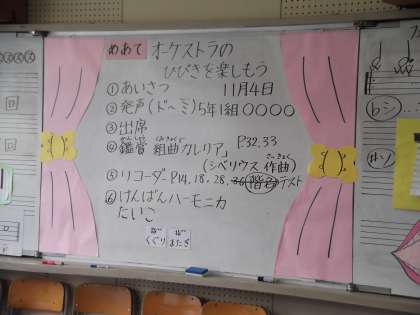 めあて オーケストラの
ひびきを楽しもう
①あいさつ 11月4日
②発声(ド〜ミ)5年1組〇〇〇〇
③出席
④鑑賞 組曲「カレリア」 P32.33
(シベリウス 作曲)
⑤リコーダーP14.18.28. テスト
⑥けんばんハーモニカ
たいこ
くぐり またぎ